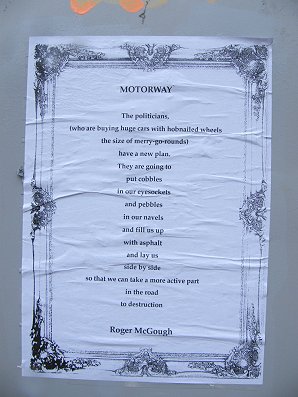 MOTORWAY
The politicians,
(who are buying huge cars with hobnailed wheels
the size of merry-go-rounds)
have a new plan.
They are going to
put cobbles
in our eyesockets
and pebbles
in our navels
and fill us up
with asphalt
and lay us
side by side
so that we can take a more active part
in the road
to destruction
Roger McGough